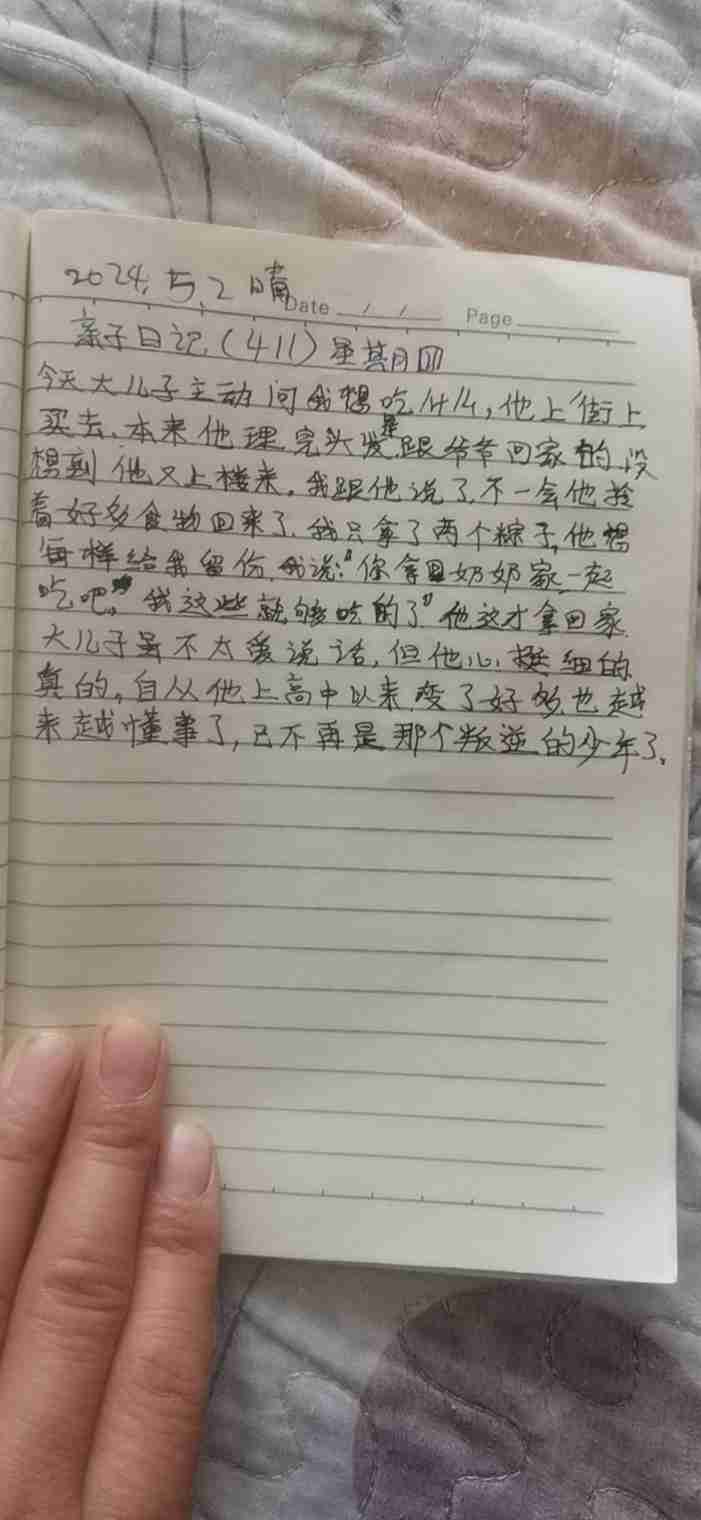 2024.5.2 晴
Date / / Page
亲子日记(411)星期四
今天大儿子主动问我想吃什么,他上街上
买去.本来他理完头发是跟爷爷回家的没
想到他又上楼来。我跟他说了.不一会他拎
着好多食物回来了.我只拿了两个粽子,他想
每样给我留份.我说:"你拿回奶奶家一起
吃吧。我这些就够吃的了"他这才拿回家.
大儿子虽不太爱说话,但他心挺细的.
真的。自从他上高中以来.变了好多.也越
来越懂事了,已不再是那个叛逆的少年了。